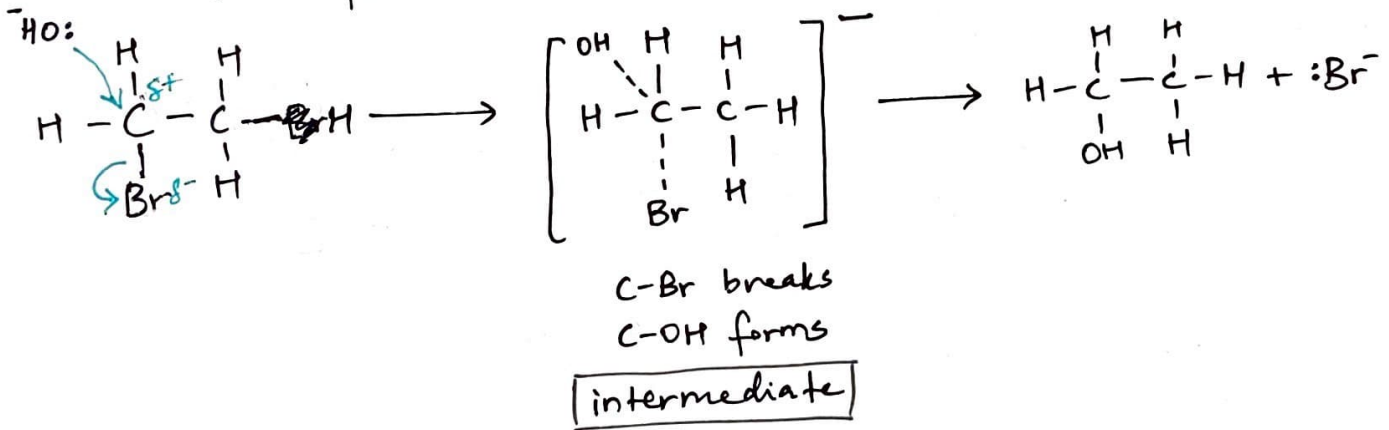 ⁻HO:
H H
H – C δ+ – C – H
Br δ- H
OH H H
H – C – C – H
Br H
–
H H
H – C – C – H + :Br⁻
OH H
C-Br breaks
C-OH forms
intermediate